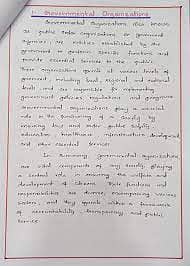 1. Governmental Organizations
Governmental Organizations, also known
as public sector organizations or government
agencies, are entities established by the
government to perform specific functions and
provide essential services to the public.
These organizations operate at various levels of
government, including local, regional and national
levels, and are responsible for implementing
government policies, regulations and programs.
Governmental organizations play a crucial
role in the functioning of a society by
ensuring law and order, public safety,
education, healthcare, infrastructure development
and other essential services.
In summary, governmental organizations
are vital components of any society, playing
a central role in ensuring the welfare and
development of citizens. Their functions and
responsibilities are diverse, encompassing various
sectors, and they operate within a framework
of accountability, transparency and public
service.